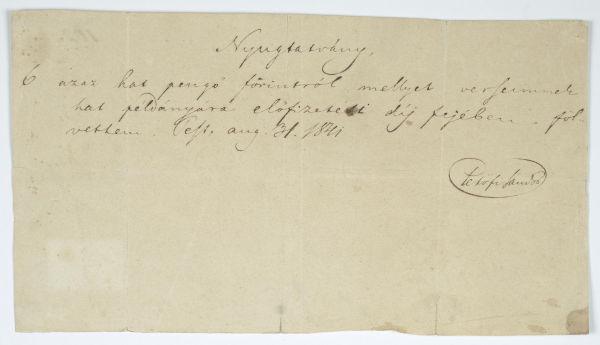 Nyugtatvány,
6 azaz hat pengő forintról mellyet verseimnek
hat példányára előfizetési díj fejébenföl-
vettem. Pest, aug. 31. 1841
Petőfi Sándor